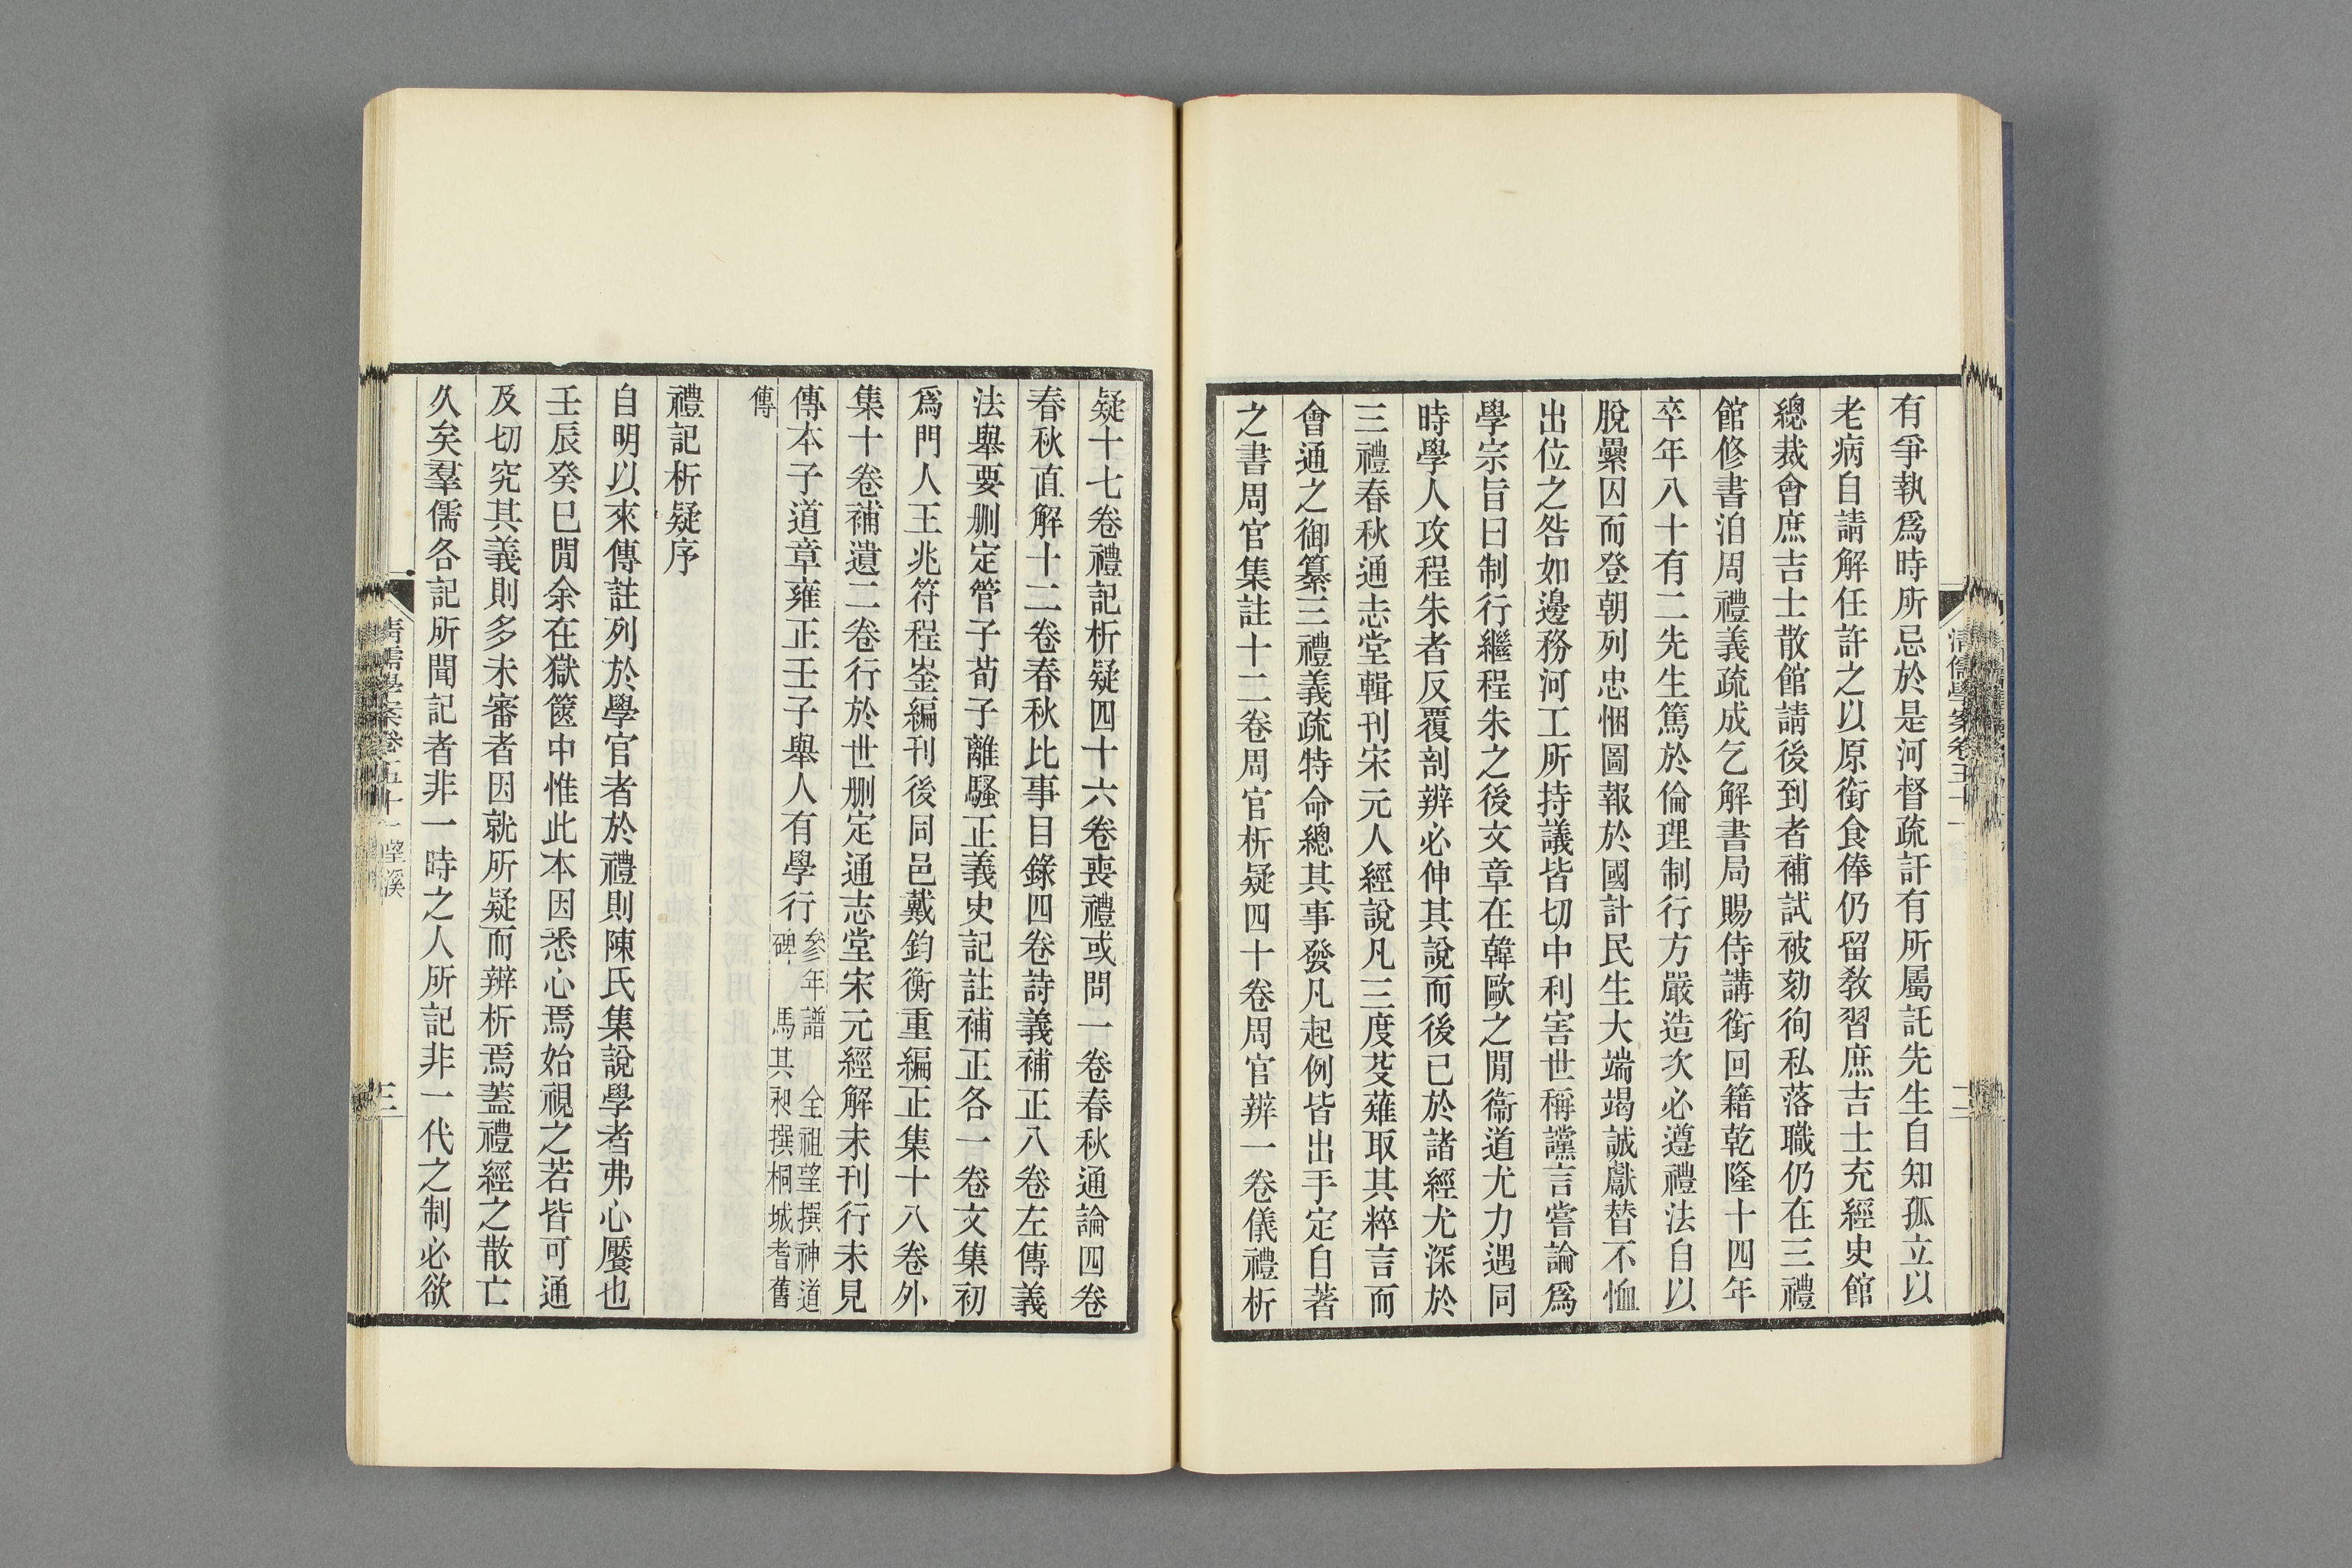 有爭執爲時所忌於是河督疏訐有所屬託先生自知孤立以
老病自請解任許之以原銜食俸仍留教習庶吉士充經史館
總裁會庶吉士散館請後到者補試被劾徇私落職仍在三禮
館修書洎周禮義疏成乞解書局賜侍講銜回籍乾隆十四年
卒年八十有二先生篤於倫理制行方嚴造次必遵禮法自以
脫纍囚而登朝列忠悃圖報於國計民生大端竭誠獻替不恤
出位之咎如邊務河工所持議皆切中利害世稱讜言嘗論爲
學宗旨曰制行繼程朱之後文章在韓歐之閒衞道尤力遇同
時學人攻程朱者反覆剖辨必伸其說而後已於諸經尤深於
三禮春秋通志堂輯刊宋元人經說凡三度芟薙取其粹言而
會通之御纂三禮義疏特命總其事發凡起例皆出手定自著
之書周官集註十二卷周官析疑四十卷周官辨一卷儀禮析
清儒學案卷五十一
二
疑十七卷禮記析疑四十六卷喪禮或問一卷春秋通論四卷
春秋直解十二卷春秋比事目錄四卷詩義補正八卷左傳義
法舉要刪定管子荀子離騷正義史記註補正各一卷文集初
爲門人王兆符程崟編刊後同邑戴鈞衡重編正集十八卷外
集十卷補遺二卷行於世刪定通志堂宋元經解未刊行未見
傳本子道章雍正壬子舉人有學行
參年譜 全祖望撰神道
碑 馬其昶撰桐城耆舊
傳
禮記析疑序
自明以來傳註列於學官者於禮則陳氏集說學者弗心饜也
壬辰癸巳閒余在獄篋中惟此本因悉心焉始視之若皆可通
及切究其義則多未審者因就所疑而辨析焉蓋禮經之散亡
久矣羣儒各記所聞記者非一時之人所記非一代之制必欲
清儒學案卷五十一 望溪
三